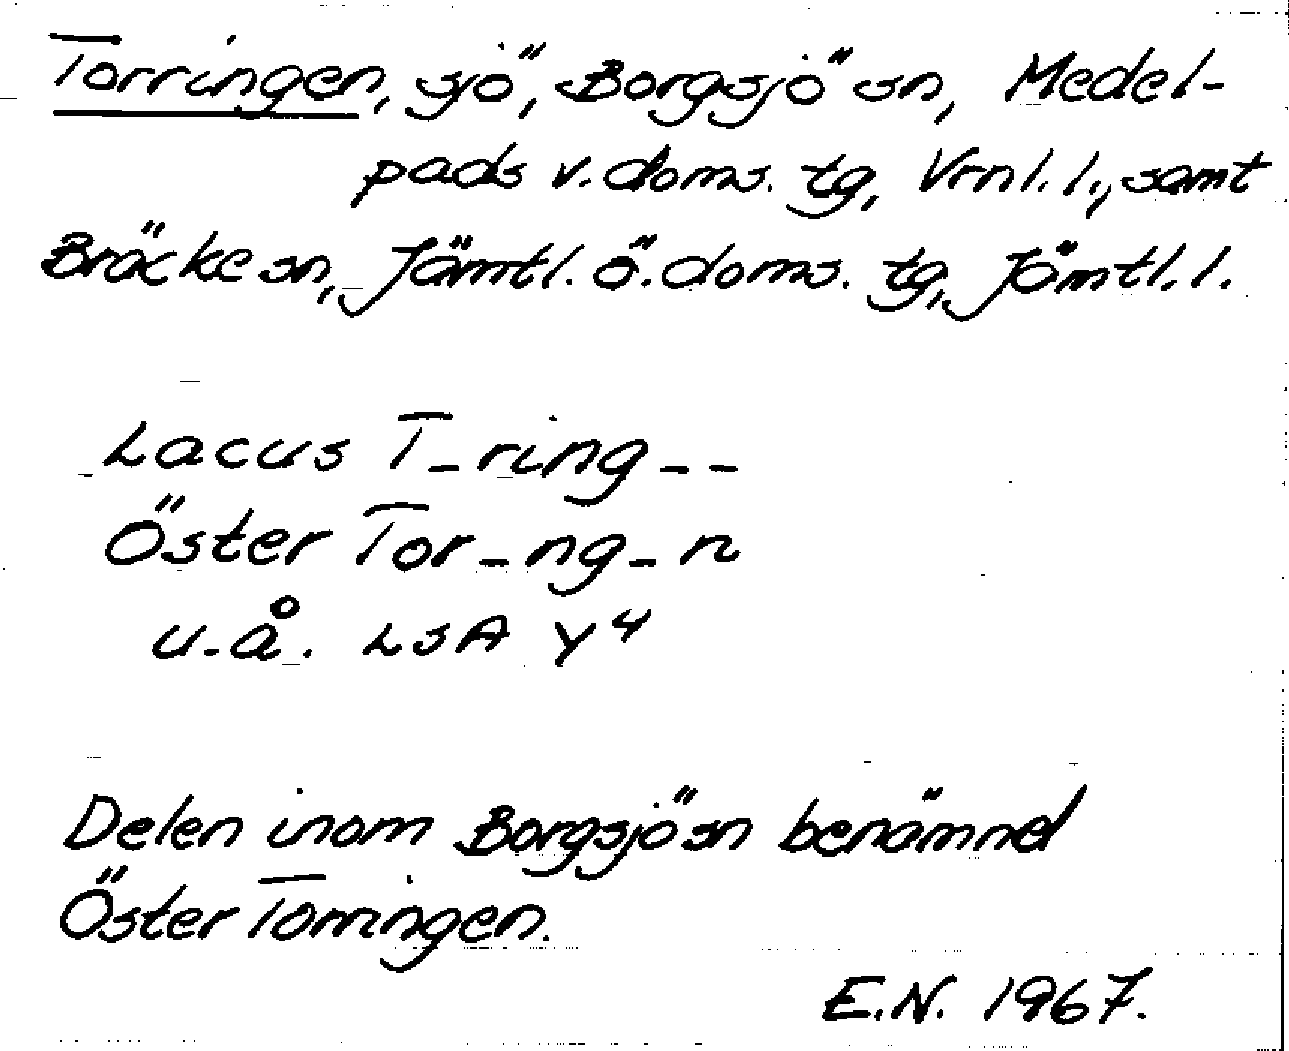 Torringen, sjö, Borgsjö sn, Medel-
pads v. doms. tg, Vrnl. l., samt
Bräcke sn, Jämtl. ö. doms. tg, Jämtl. l.
Lacus T_ring__
Öster Tor_ng_n
u.å. LSA Y4
Delen inom Borgsjö sn benämnd
Öster Torringen.
E.N. 1967.